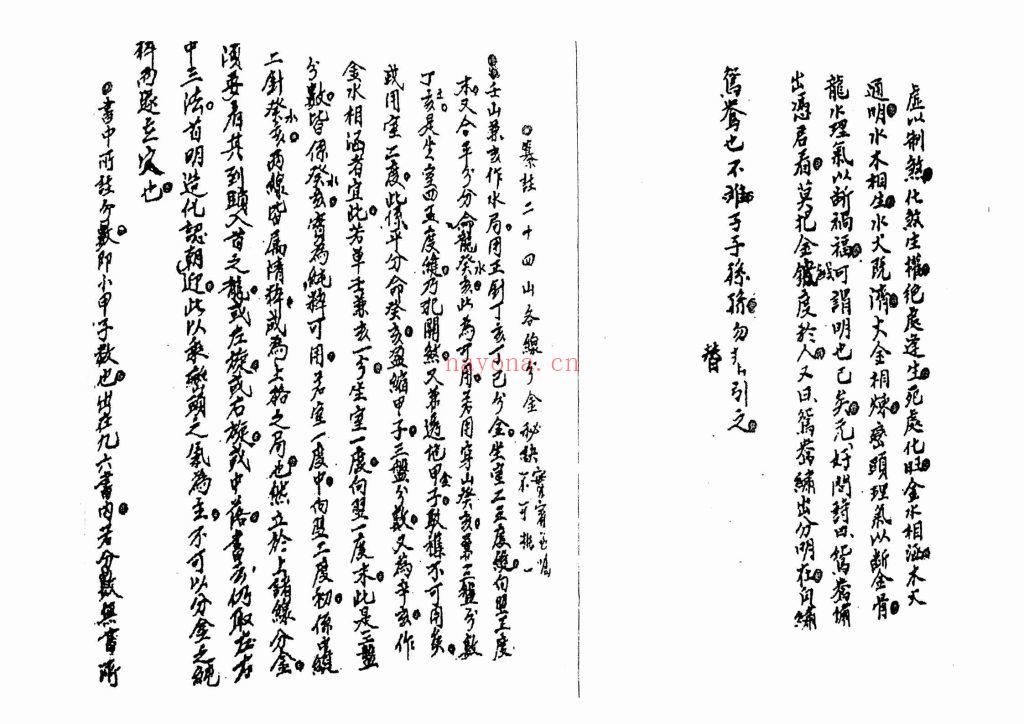 虛以制煞化煞生權絕處逢生死處化旺金水相涵木火
通明水木相生水火既濟火金相煉巒頭理氣以斷金骨
龍水理氣以斷禍福可謂明也已矣元好問詩曰鴛鴦繡
出憑君看莫把金鍼度於人又曰鴛鴦繡出分明在向繡
鴛鴦也不難子子孫孫勿 引之
替
纂註二十四山各線分金秘訣
壬山兼亥作水局用正針丁亥丁巳分金坐室二五度縫向翌五度
木又合平分分命龍癸亥水此為可用若用穿山癸亥兼三盤分數
丁亥是坐室四五度縫乃犯關煞又兼透地甲子金取雜不可用矣
或用室二度此係平分命癸亥盈縮甲子三盤分數又為辛亥作
金水相涵者宜此若單壬兼亥一分坐室一度向翌一度末此是三盤
分數皆係癸亥水審為純粹可用若室一度中向翌二度初係中縫
二針癸亥水兩線皆屬清粹或為上格之局也然立於上諸線分金
須要看其到頭入首之龍或左旋或右旋或中落書云仍取左右
中三法首明造化認朝迎此以乘巒頭之氣為主不可以分金之純
粹而遂立穴也
書中所註分數即小甲子數也出在九六書內若分數無書所
nayona.cn